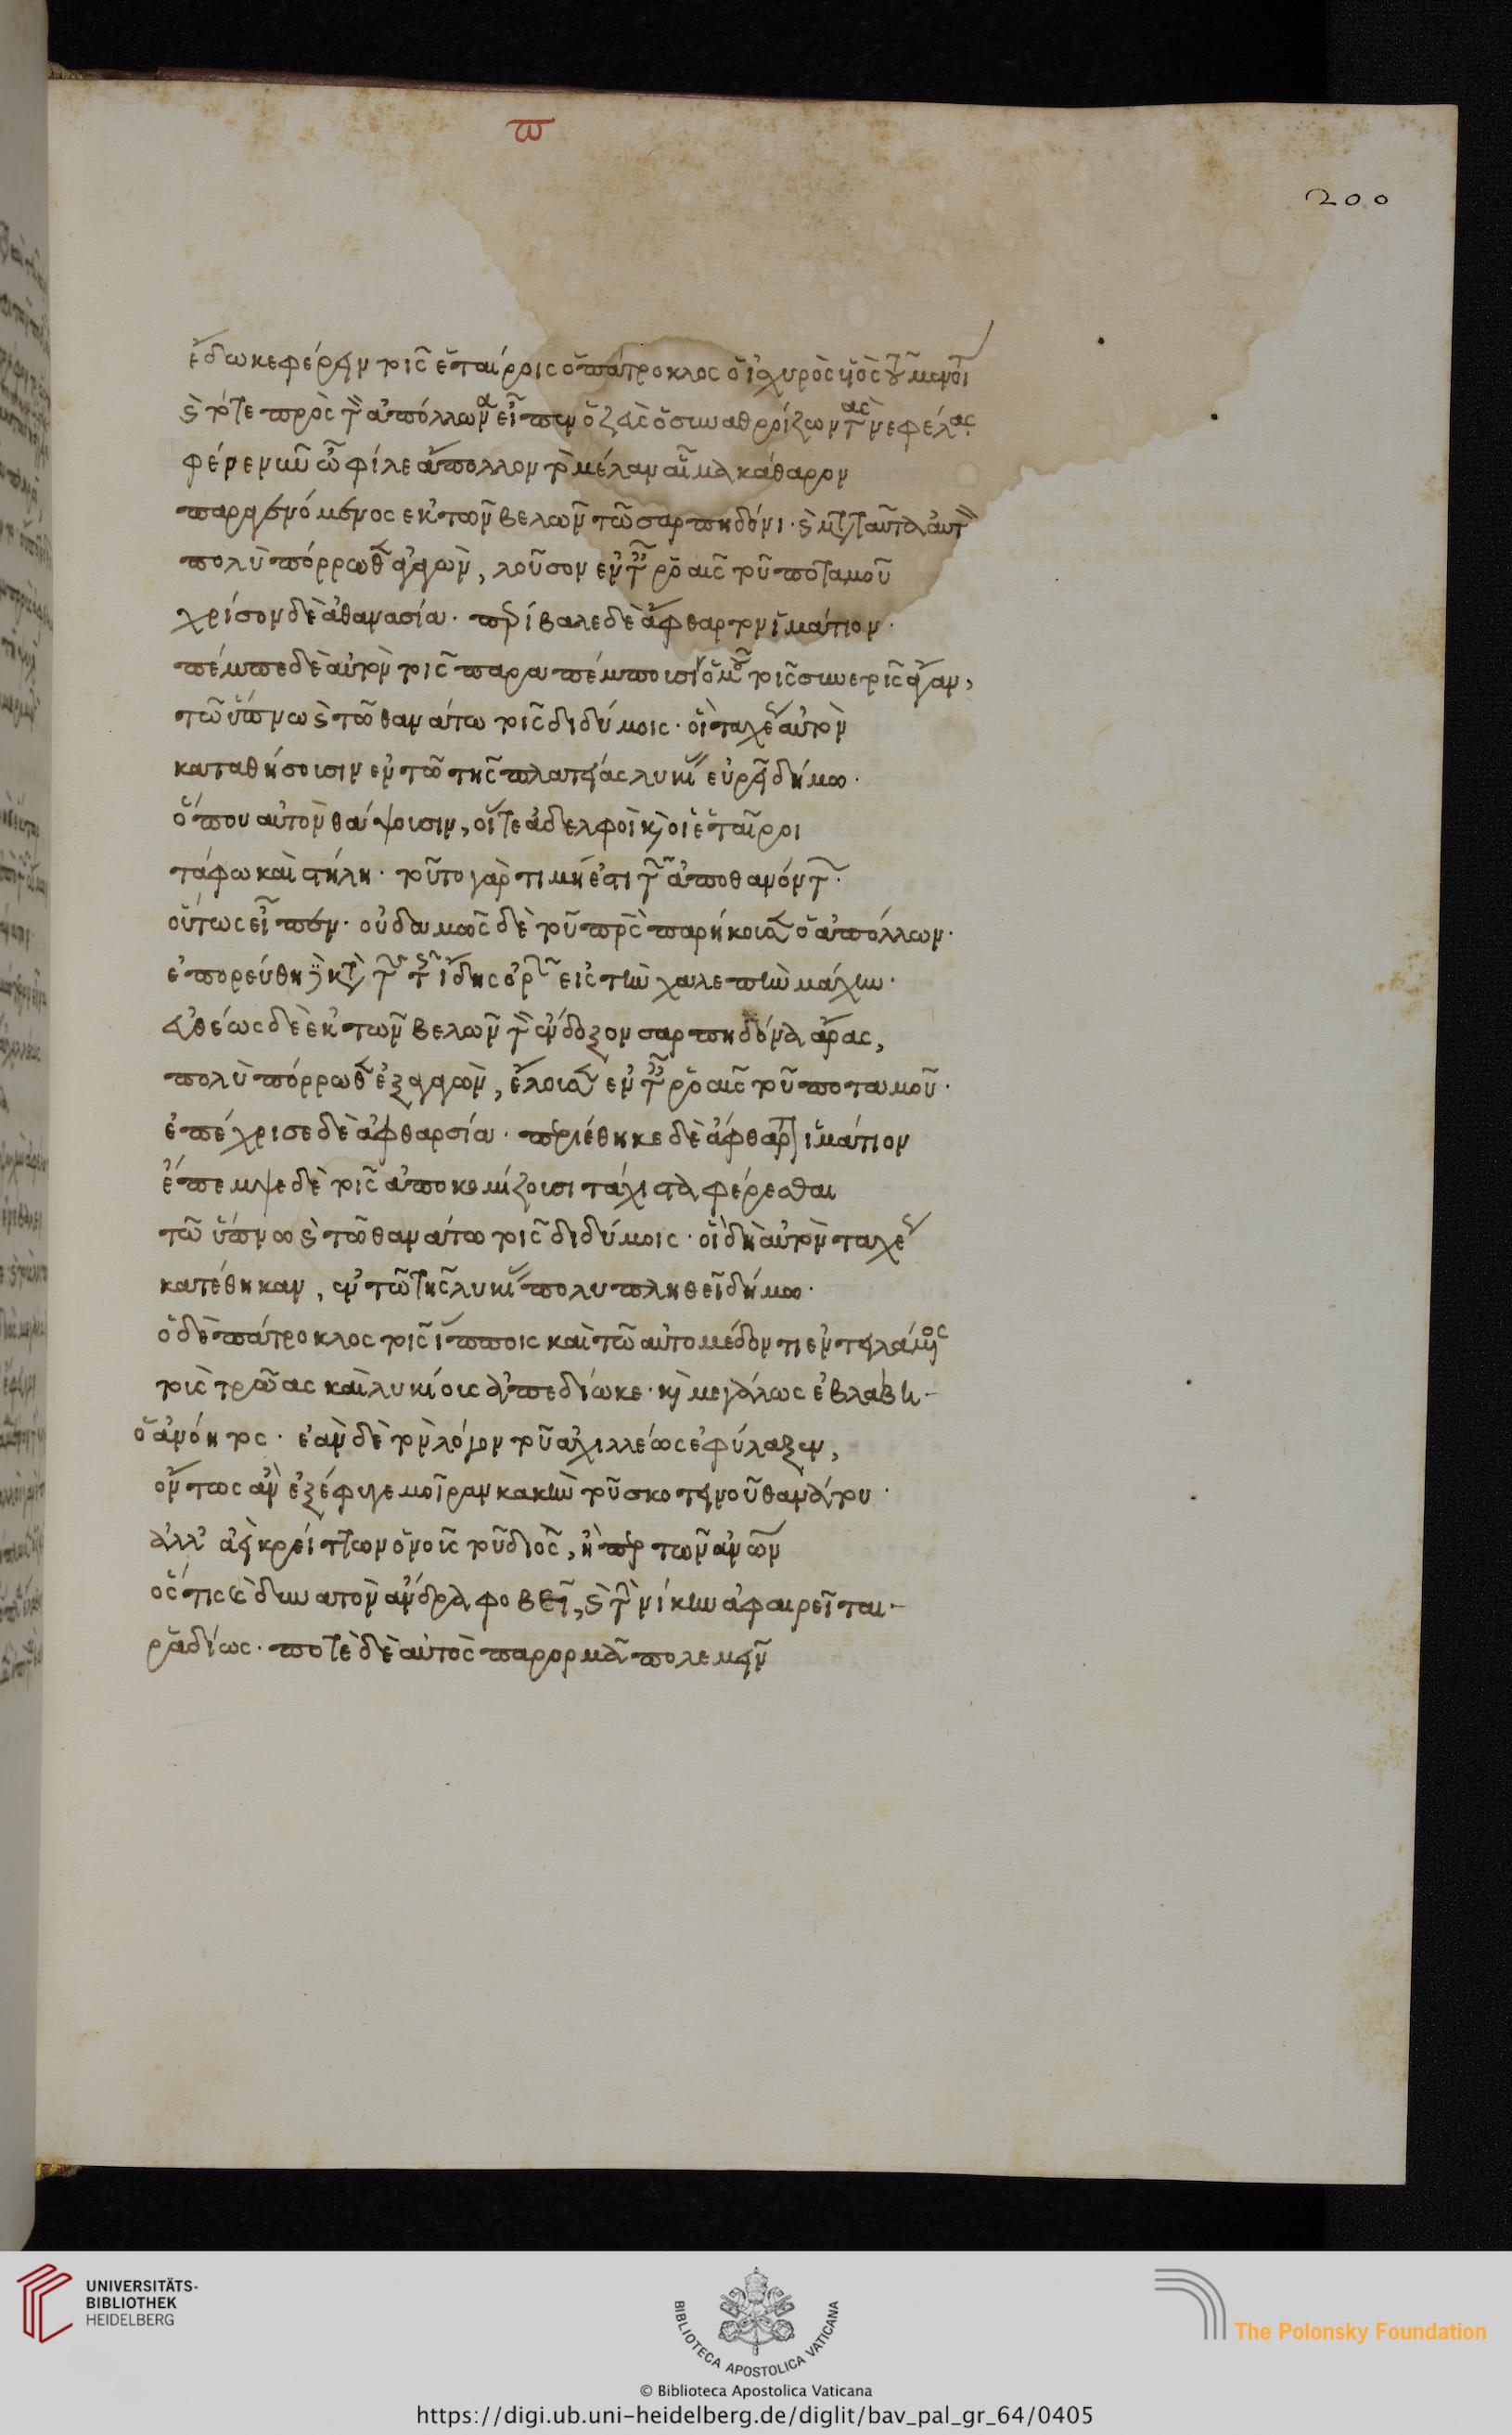 π
200
ἔδωκε φέρειν τοῖς ἑταίροις ὁ πάτροκλος ὁ ἰσχυρὸς υἱὸς τοῦ μενοιτίου
καὶ τότε πρὸς τὸν ἀπόλλωνα εἶπεν ὁ ζεὺς ὁ συναθροίζων τὰς νεφέλας.
φέρε νῦν ὦ φίλε ἄπολλον τὸ μέλαν αἷμα κάθαρον
παραγενόμενος ἐκ τῶν βελῶν τῶ σαρπηδόνι· καὶ μετὰ ταῦτα αὐτὸν
πολὺ πόρρωθεν ἀγαγὼν, λοῦσον ἐν ταῖς ῥοαῖς τοῦ ποταμοῦ
χρίσον δὲ ἀθανασία· περίβαλε δὲ ἄφθαρτον ἱμάτιον·
πέμπε δὲ αὐτὸν τοῖς παραπέμπουσιν ὁμοῦ τοῖς συνετοῖς ἄγαν,
τῶ ὕπνω καὶ τῶ θανάτω τοῖς διδύμοις· οἳ ταχέως αὐτὸν
καταθήσουσιν ἐν τῶ τῆς πλατείας λυκίας εὐρεῖ δήμω·
ὅπου αὐτὸν θάψουσιν, οἵ τε ἀδελφοὶ καὶ οἱ ἑταῖροι
τάφω καὶ στήλη· τοῦτο γὰρ τιμή ἐστι τῶν ἀποθανόντων·
οὕτως εἶπεν· οὐδαμῶς δὲ τοῦ πατρὸς παρήκουσεν ὁ ἀπόλλων·
ἐπορεύθη δὲ κατὰ τῶν τῆς ἴδης ὀρῶν εἰς τὴν χαλεπὴν μάχην·
εὐθέως δὲ ἐκ τῶν βελῶν τὸν ἔνδοξον σαρπηδόνα ἄρας,
πολὺ πόρρωθεν ἐξαγαγὼν, ἔλουσεν ἐν ταῖς ῥοαῖς τοῦ ποταμοῦ·
ἐπέχρισε δὲ ἀφθαρσία· περιέθηκε δὲ ἄφθαρτον ἱμάτιον
ἔπεμψε δὲ τοῖς ἀποκομίζουσι τάχιστα φέρεσθαι
τῶ ὕπνω καὶ τῶ θανάτω τοῖς διδύμοις· οἳ δὴ αὐτὸν ταχέως
κατέθηκαν, ἐν τῶ τῆς λυκίας πολυπληθεῖ δήμω·
ὁ δὲ πάτροκλος τοῖς ἵπποις καὶ τῶ αὐτομέδοντι ἐντειλάμενος
τοὺς τρῶας καὶ λυκίους ἀπεδίωκε· καὶ μεγάλως ἐβλάβη
ὁ ἀνόητος· ἐὰν δὲ τὸν λόγον τοῦ ἀχιλλέως ἐφύλαξεν,
ὄντως ἂν ἐξέφυγε μοῖραν κακὴν τοῦ σκοτεινοῦ θανάτου·
ἀλλ' ἀεὶ κρείττων ὁ νοῦς τοῦ διὸς, ἤπερ τῶν ἀνθρώπων
ὅστις καὶ δυνατὸν ἄνδρα φοβεῖ, καὶ τὴν νίκην ἀφαιρεῖται
ῥαδίως· ποτὲ δὲ αὐτὸς παρορμᾶ πολεμεῖν
UNIVERSITÄTS-
BIBLIOTHEK
HEIDELBERG
BIBLIOTECA APOSTOLICA VATICANA
The Polonsky Foundation
© Biblioteca Apostolica Vaticana
https://digi.ub.uni-heidelberg.de/diglit/bav_pal_gr_64/0405